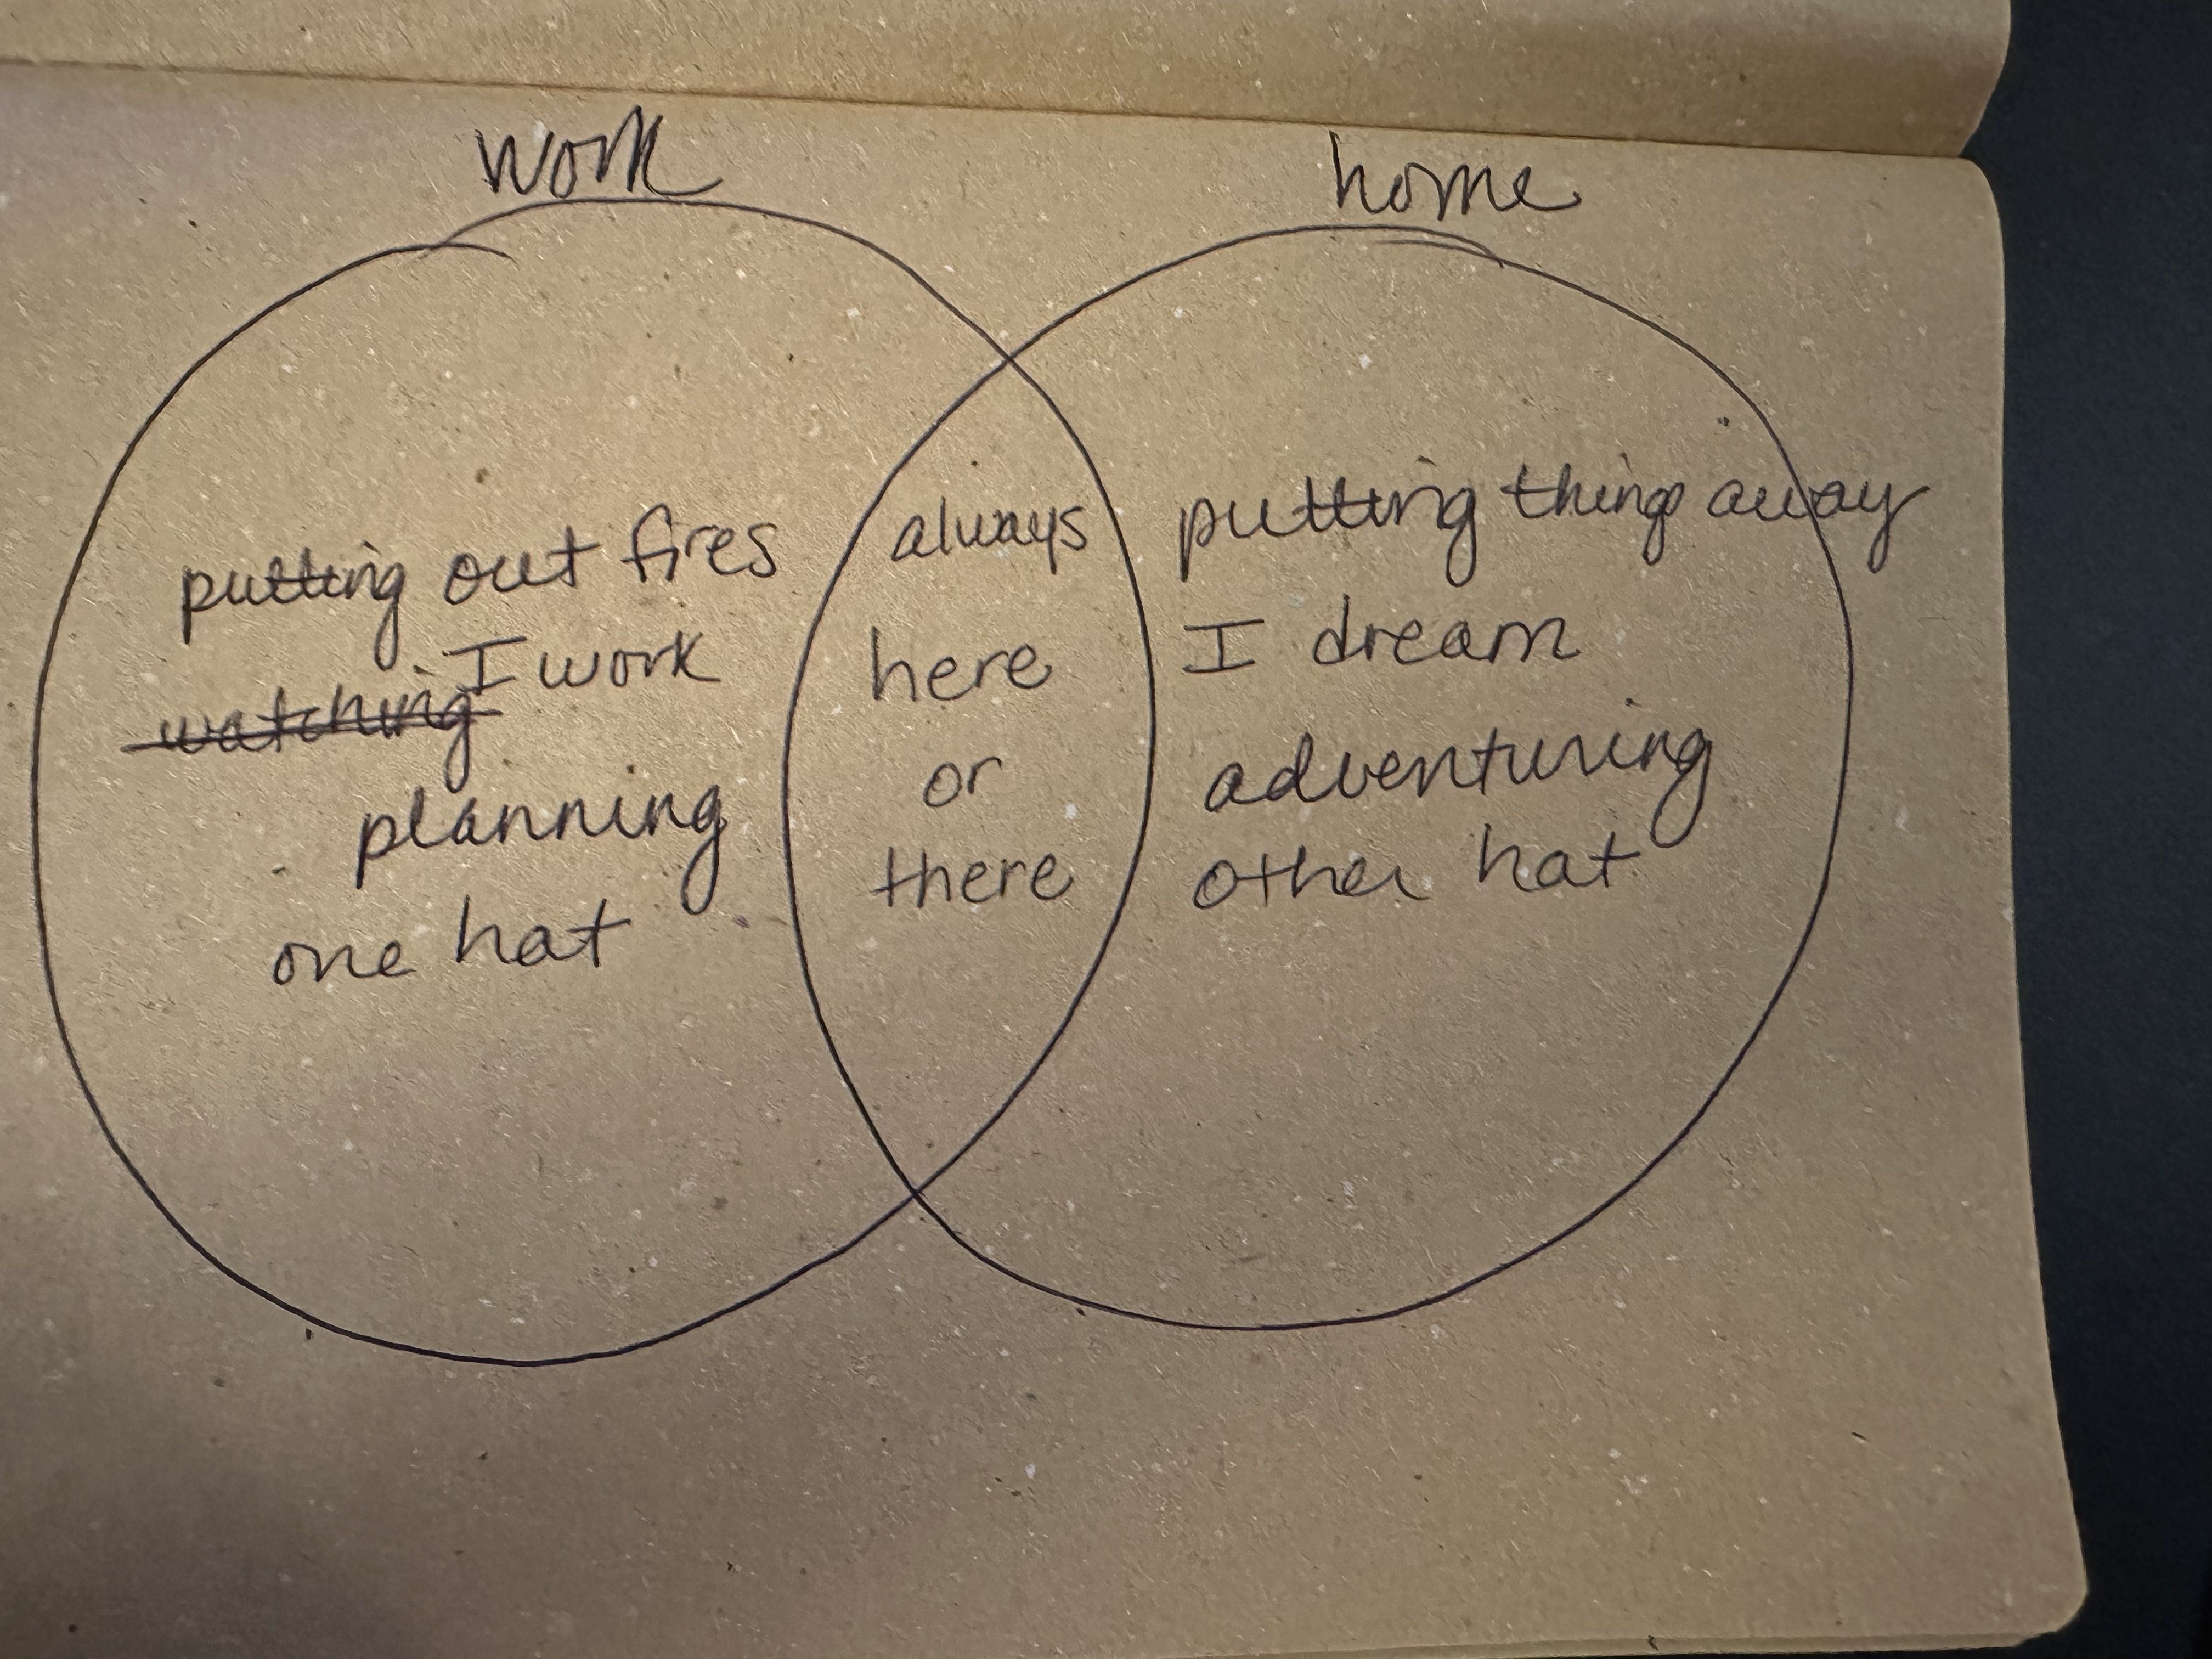 work
home
putting out fires
I work
watching
planning
one hat
always
here
or
there
putting things away
I dream
adventuring
other hat